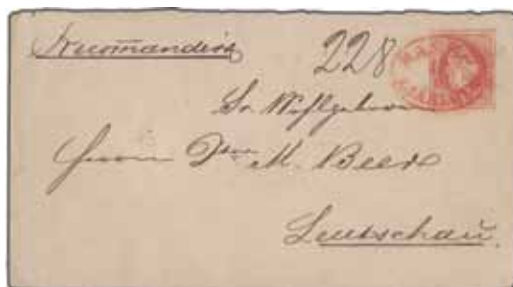 Recomandirt
228
Sr Wohlgeborn
Herrn M. Beer
Leutschau.